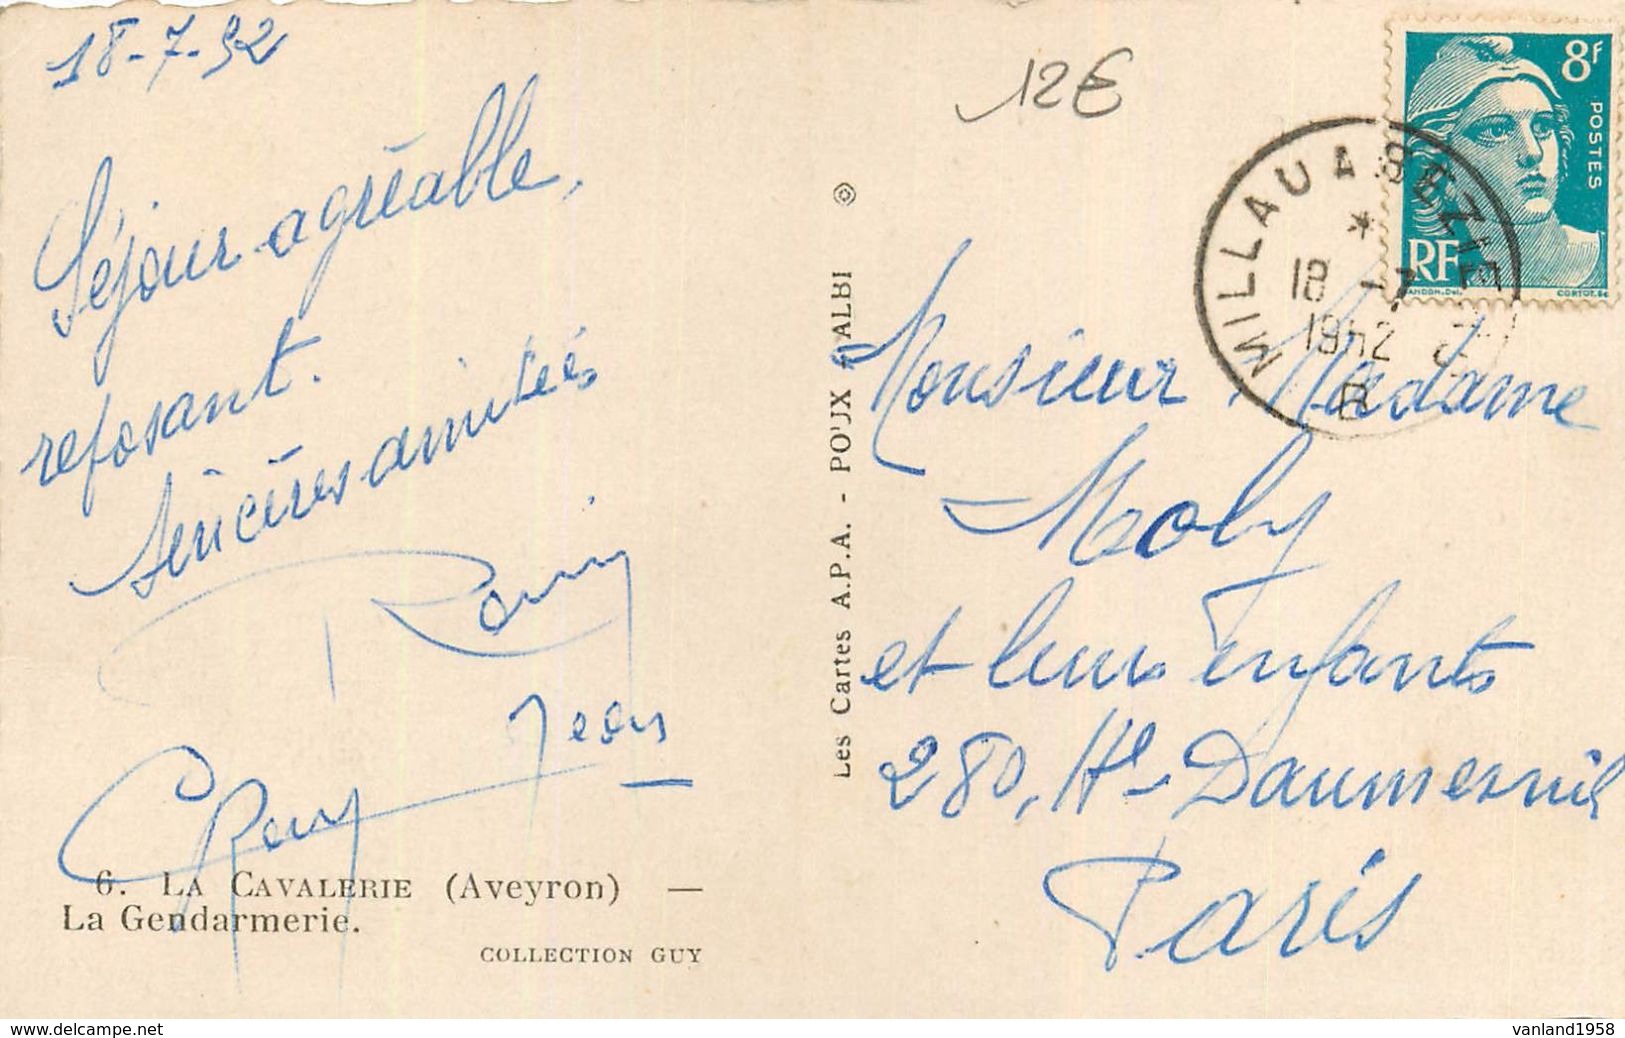 18-7-52
Séjour agréable,
reposant.
Sincères amitiés
Jean
6. LA CAVALERIE (Aveyron) —
La Gendarmerie.
COLLECTION GUY
Les Cartes A.P.A. - POUX - ALBI
12€
8F
POSTES
RF
CORTOT.Sc
MILLAU A BEZIERS
18 -7
1952
B
Monsieur Madame
Moly
et leurs enfants
280, Daumesnil
Paris
www.delcampe.net
vanland1958